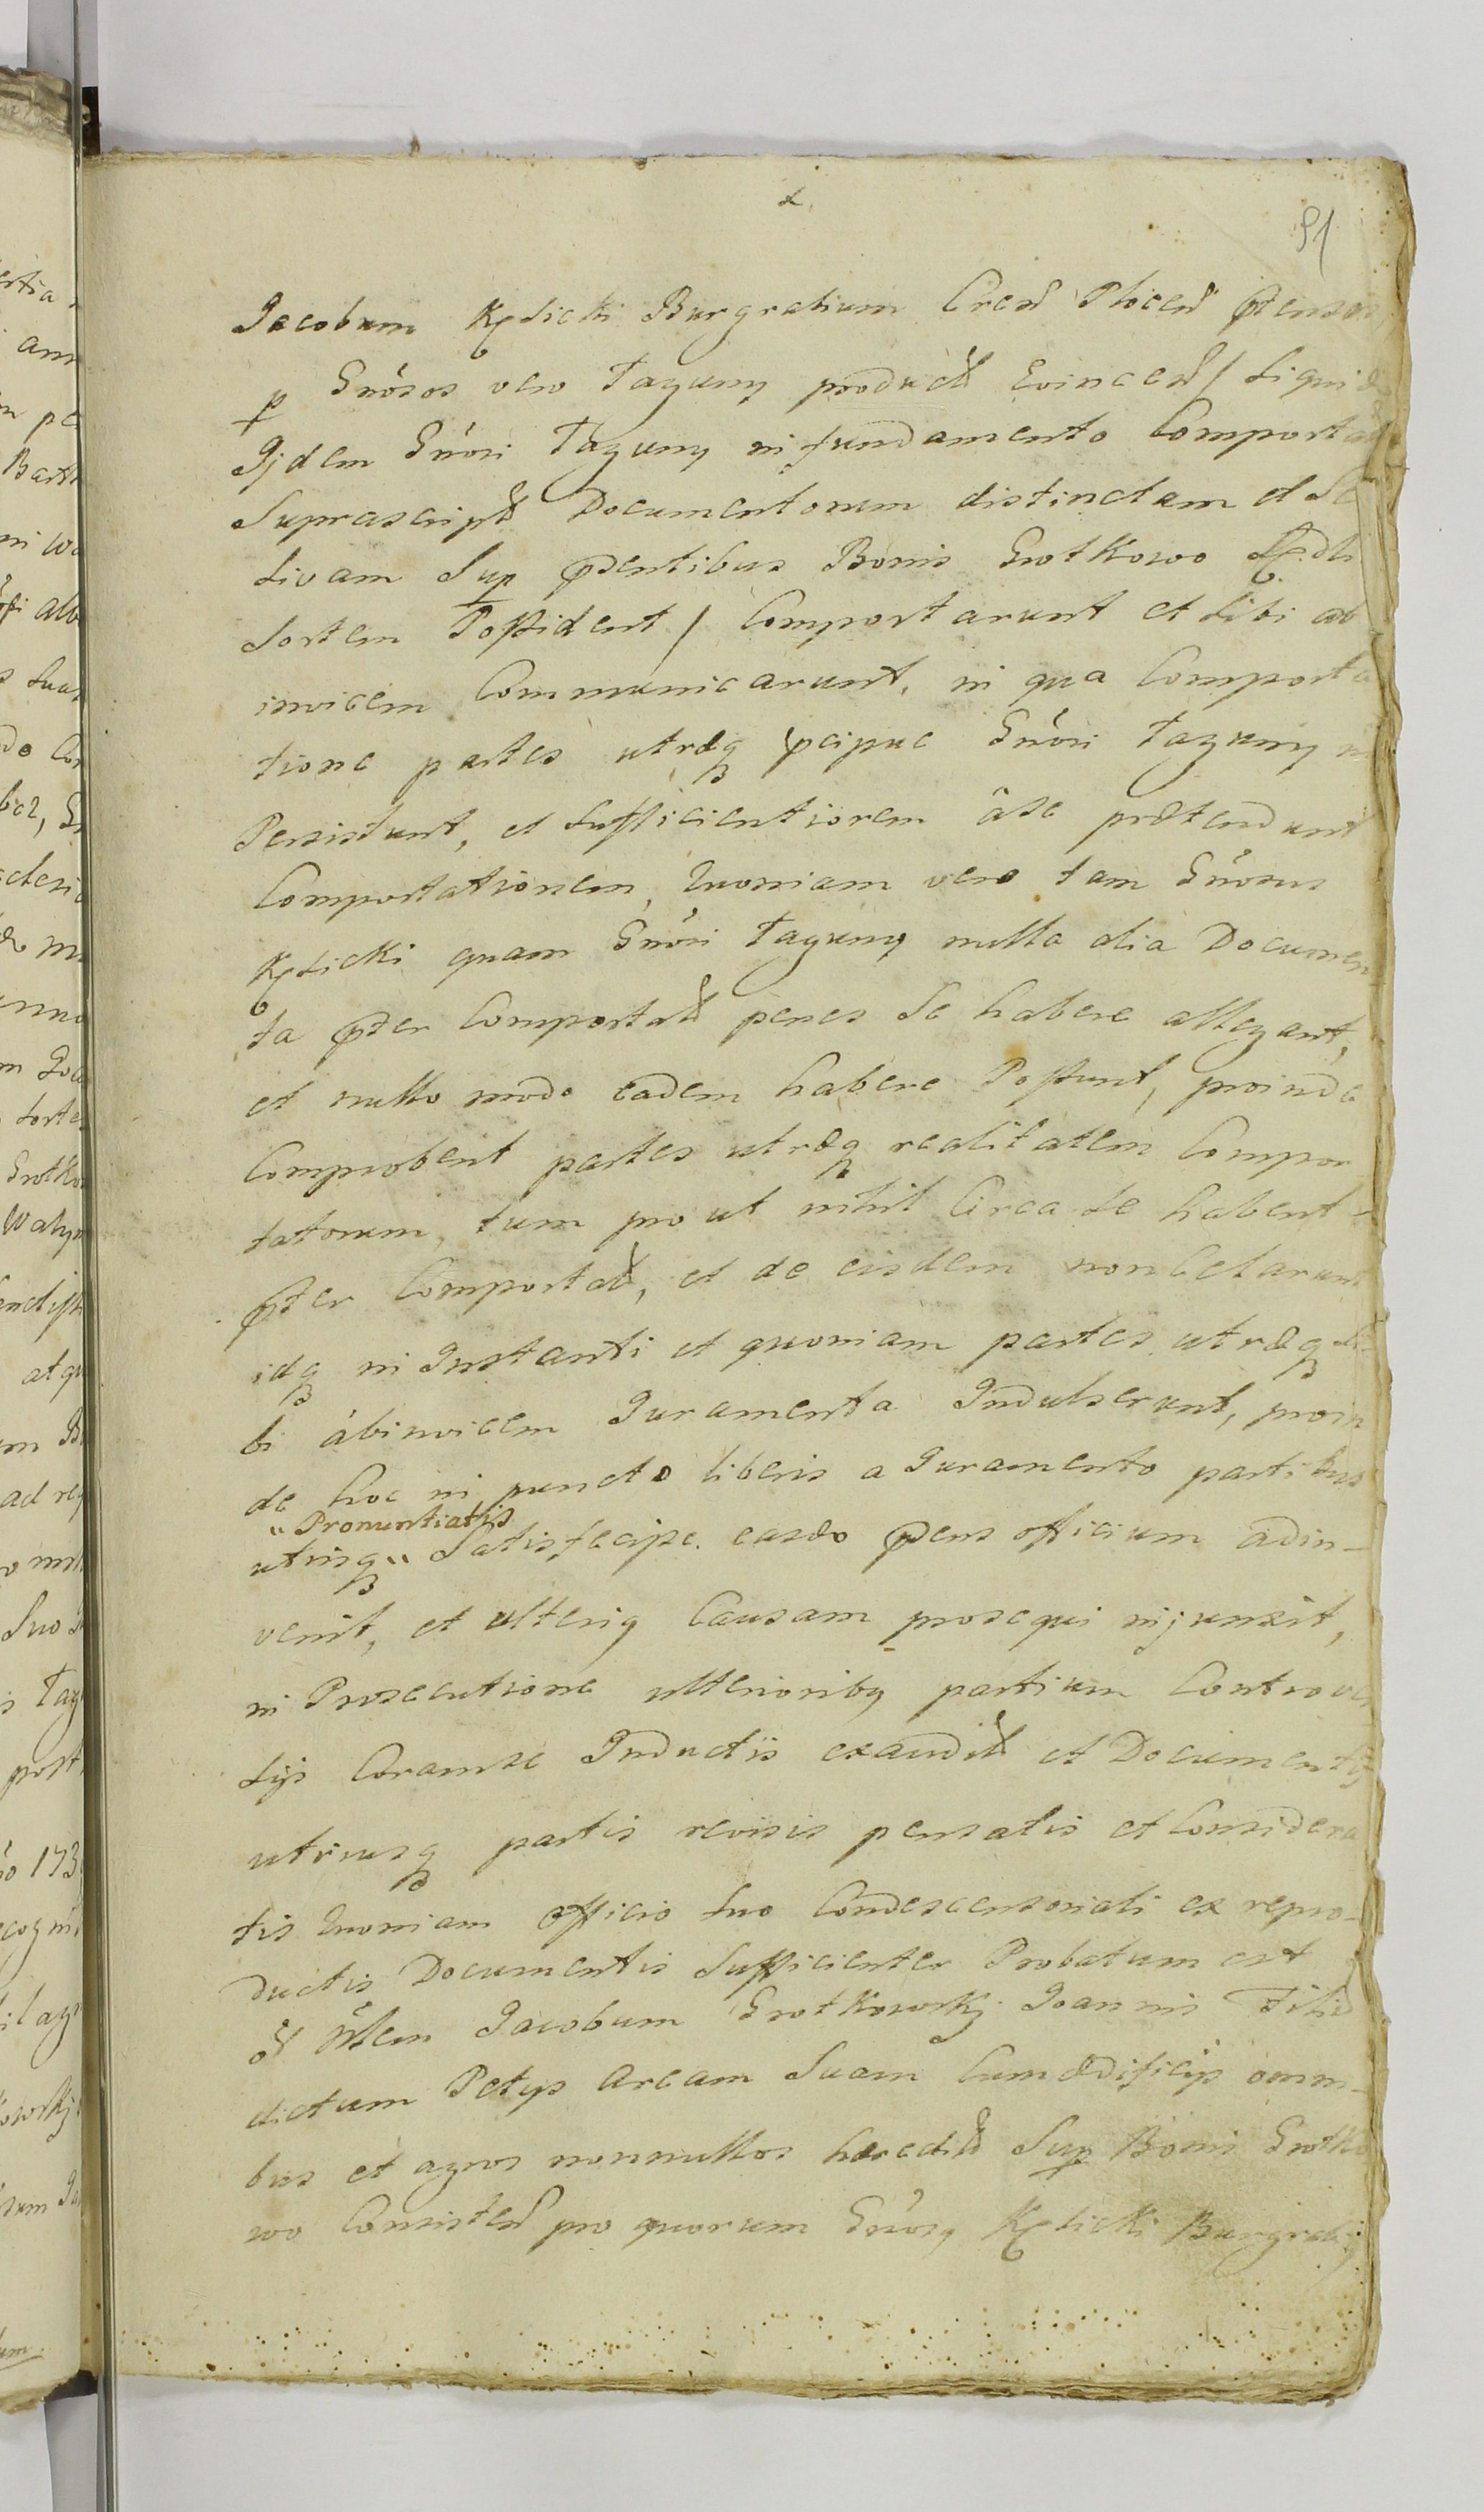 91
Jacobum Kęsicki Burgrabium Cren Plocen
p Gnosos vero Taguny product Evincen / liqui
Ijdem Gnosi Taguny in fundamento Comporta
Suprascript Documentorum distinctam et Se
sivam Sup pntibus Bonis Grotkowo
Sortem Possident / Comportarunt et Sibi ab
invicem Communicarunt, in qua Comporta
tione partes utræq pcipue Gnosi Taguny
Persistunt, et sufficientiorem a se prætendunt
Comportationem, Quoniam vero tam Gnosus
Kęsicki quam Gnosi Taguny nulla alia Documen
ta pter Comportat penes Se habere allegant,
et nullo modo eadem habere Possunt, proinde
Comprobent partes utræq realitatem Compor
tatorum, tum pro ut nihil Circa se habent
pter Comportat, et de eisdem non Celarunt
idq in Instanti et quoniam partes utræq Si
bi abinvicem Juramenta Indulserunt, proin
de hoc in puncto liberis a Juramento partibus
" Pronuntiatis
utrisq " Satisfecisse easdo pens officium adin-
venit, et ulteriq Causam prosequi injunxit,
in Prosecutione ulterioribq partium Controver
sijs Coramse Inductis exaudit et Documentis
utriusq partis revisis pensatis et Considera
tis Quoniam Officio suo Condescensoriali ex repro-
ductis Documentis Sufficienter Probatum est
Jacobum Grotkowskj Joannis Filiu
dictum Petys Aream Suam Cum ædificijs omni-
bus et agros nonnullos hæredit Sup Bonis Grotko
wo Consisten pro quorum Gnosq Kęsicki Burgrabiq